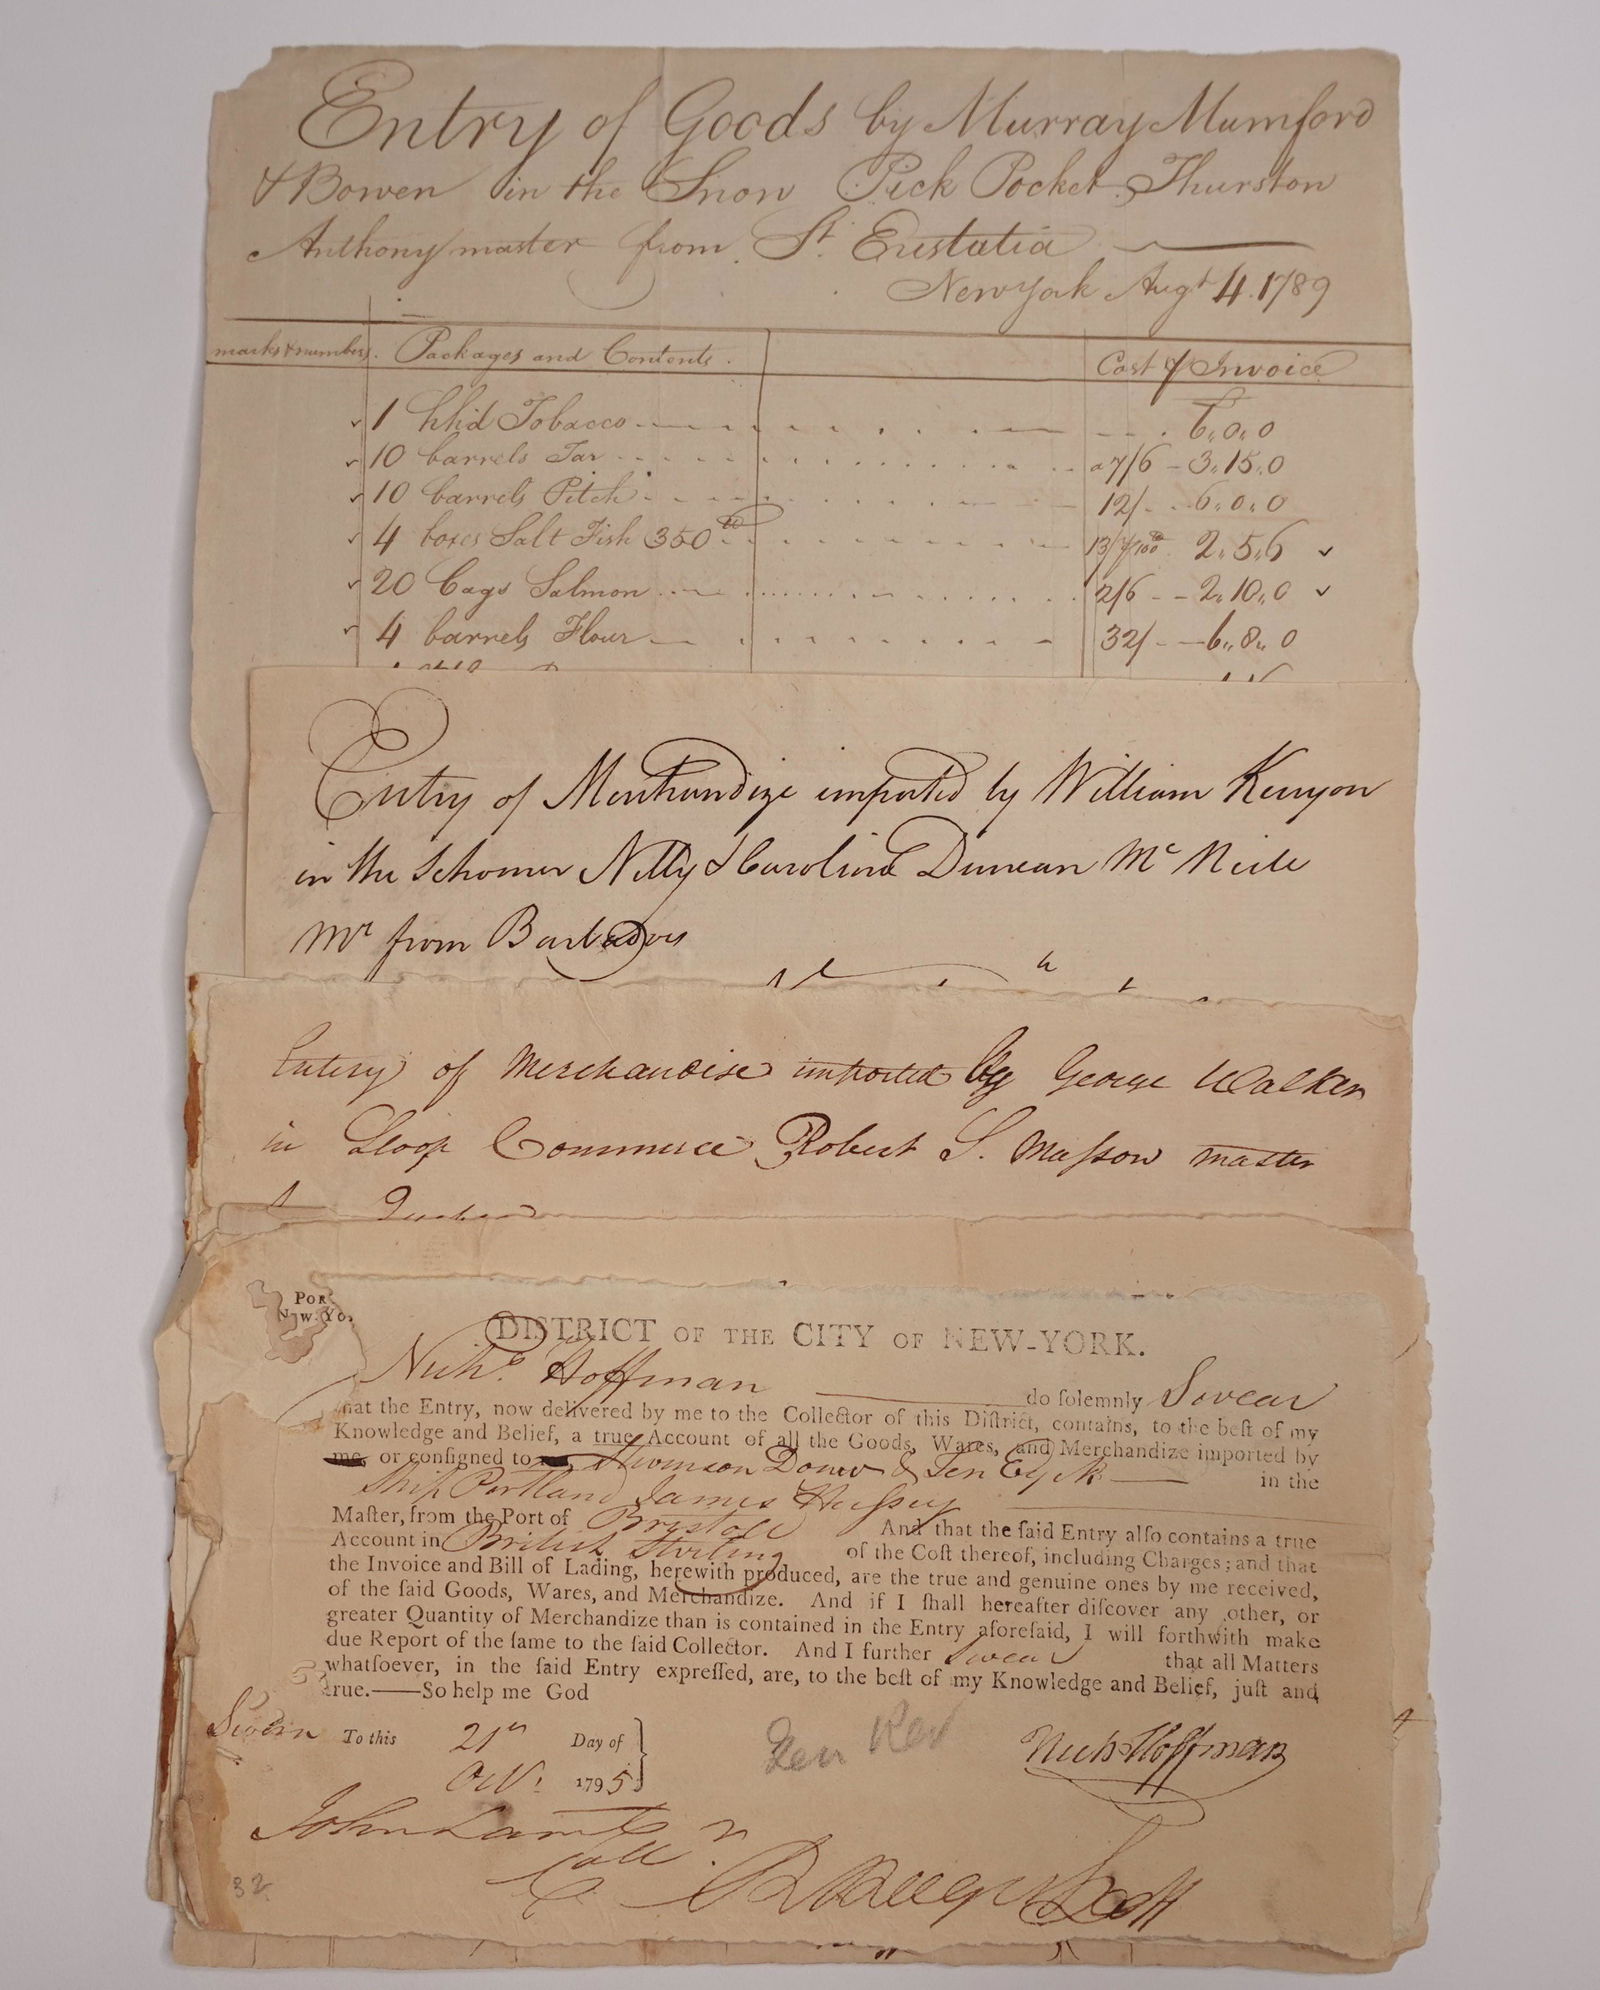 Entry of Goods by Murray Mumford
& Bowen in the Snow Pick Pocket Thurston
Anthony master from St. Eustatia
New York Augt 4. 1789
marks & numbers. Packages and Contents. Cost ⅌ Invoice
1 hhd Tobacco 6,,0,,0
10 barrels Tar a 7/6 - 3,,15,,0
10 barrels Pitch 12/ 6,,0,,0
4 boxes Salt Fish 350 lb 13/ ⅌ 100 lb 2,,5,,6
20 Cags Salmon 2/6 - - 2,,10,,0
4 barrels Flour 32/ - - 6,,8,,0
Entry of Merchandize imported by William Kenyon
in the Schooner Nelly & Caroline Duncan Mc Neile
Mr from Barbados
Entery of Merchandise imported by George Walker
in Sloop Commerce Robert S. Maſson master
POR
NEW-YO
DISTRICT OF THE CITY OF NEW-YORK.
Nichs. Hoffman do ſolemnly Swear
that the Entry, now delivered by me to the Collector of this Diſtrict, contains, to the beſt of my
Knowledge and Belief, a true Account of all the Goods, Wares, and Merchandize imported by
me, or conſigned to Ten Eyck in the
Ship Portland James Huſsey
Maſter, from the Port of Bristoll And that the ſaid Entry alſo contains a true
Account in British Sterling of the Coſt thereof, including Charges; and that
the Invoice and Bill of Lading, herewith produced, are the true and genuine ones by me received,
of the ſaid Goods, Wares, and Merchandize. And if I ſhall hereafter diſcover any other, or
greater Quantity of Merchandize than is contained in the Entry aforeſaid, I will forthwith make
due Report of the ſame to the ſaid Collector. And I further Swear that all Matters
whatſoever, in the ſaid Entry expreſſed, are, to the beſt of my Knowledge and Belief, juſt and
true.——So help me God
Sworn To this 21st Day of
Oct. 1795
Nichs Hoffman
John Lamb
Collr.
32